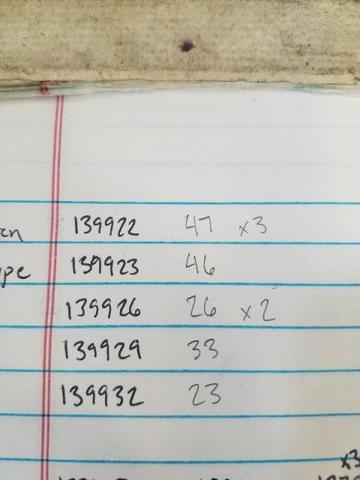 139922 47 x3
139923 46
139926 26 x2
139929 33
139932 23
x3